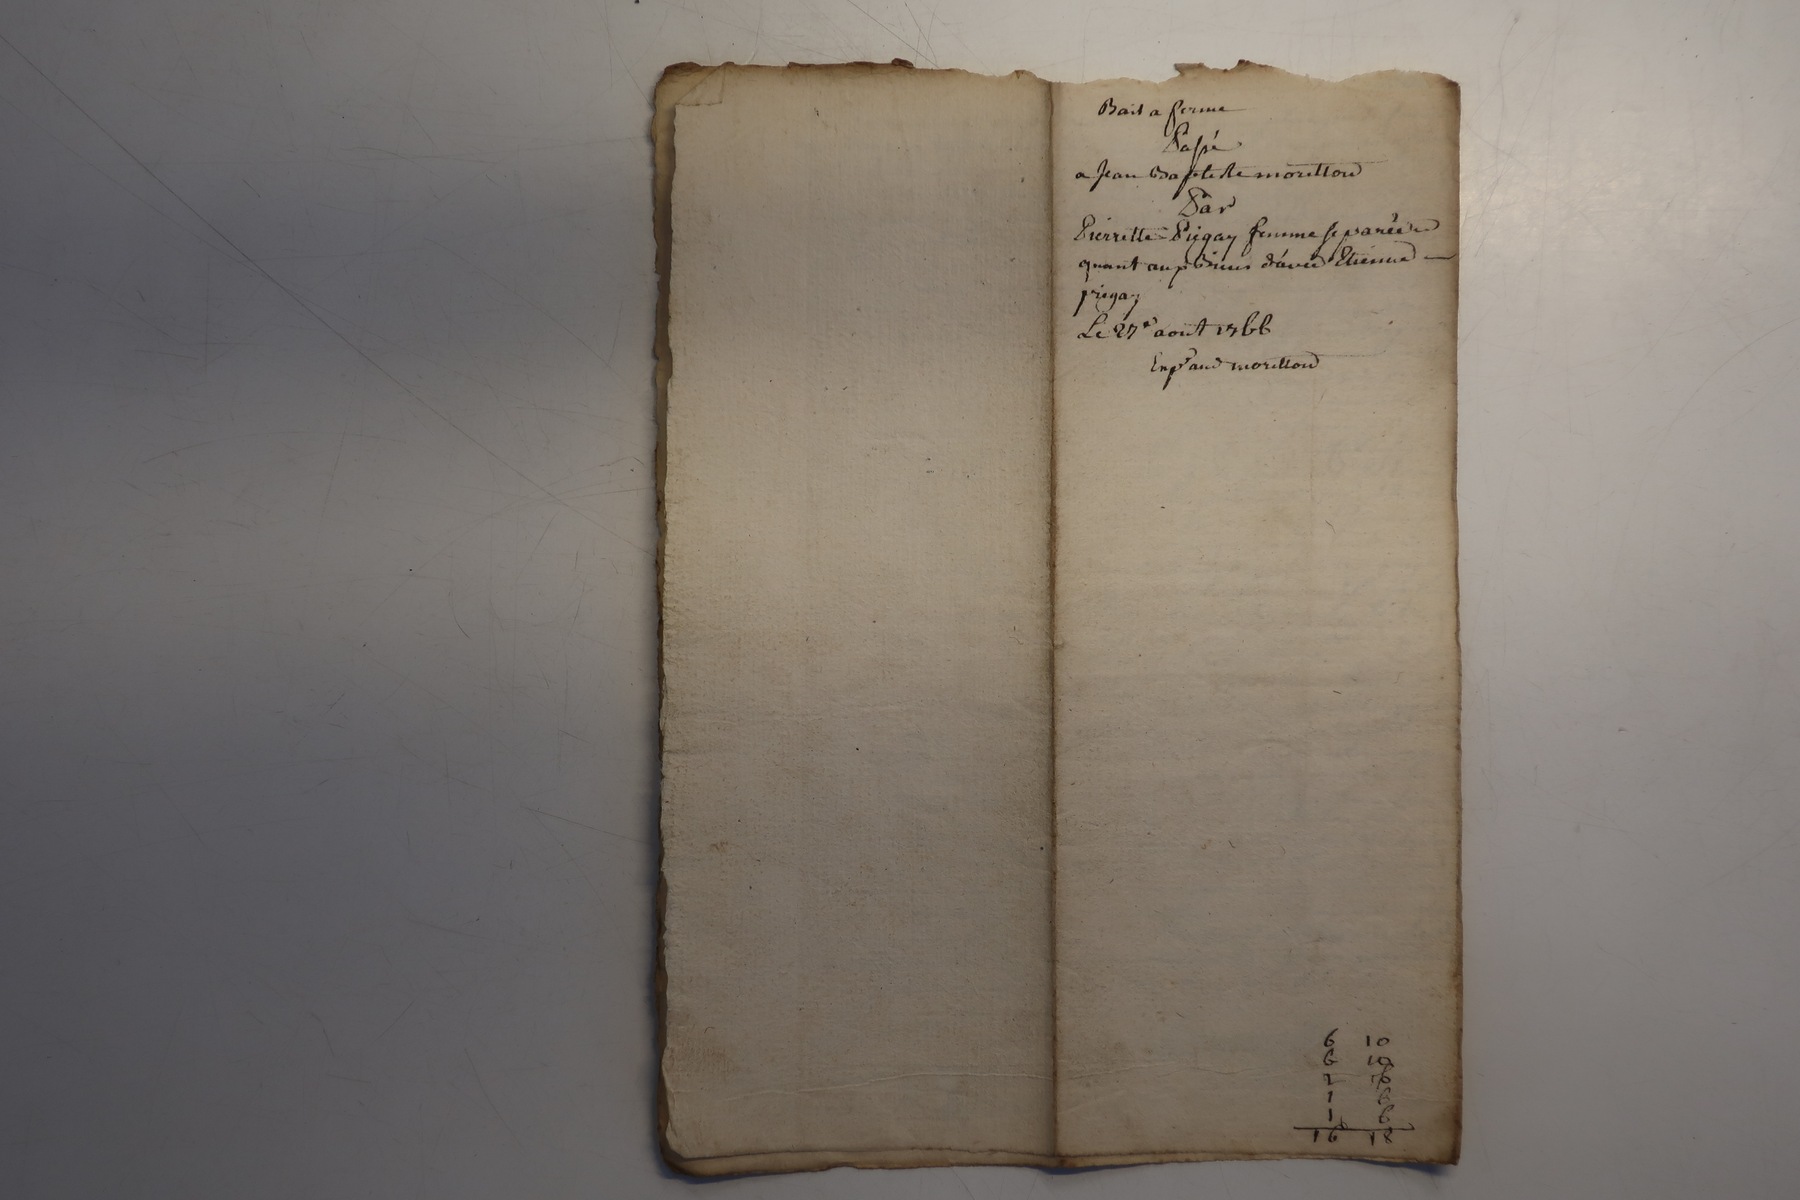 Bail a ferme
Passé
a Jean Baptiste morillon
Par
Pierrette Pigay femme separée
quant aux biens d'avec Etienne
pigay
Le 27e aout 1766
Exp.on aud morillon
6 10
6 10
2
1 6
1 6
16 18